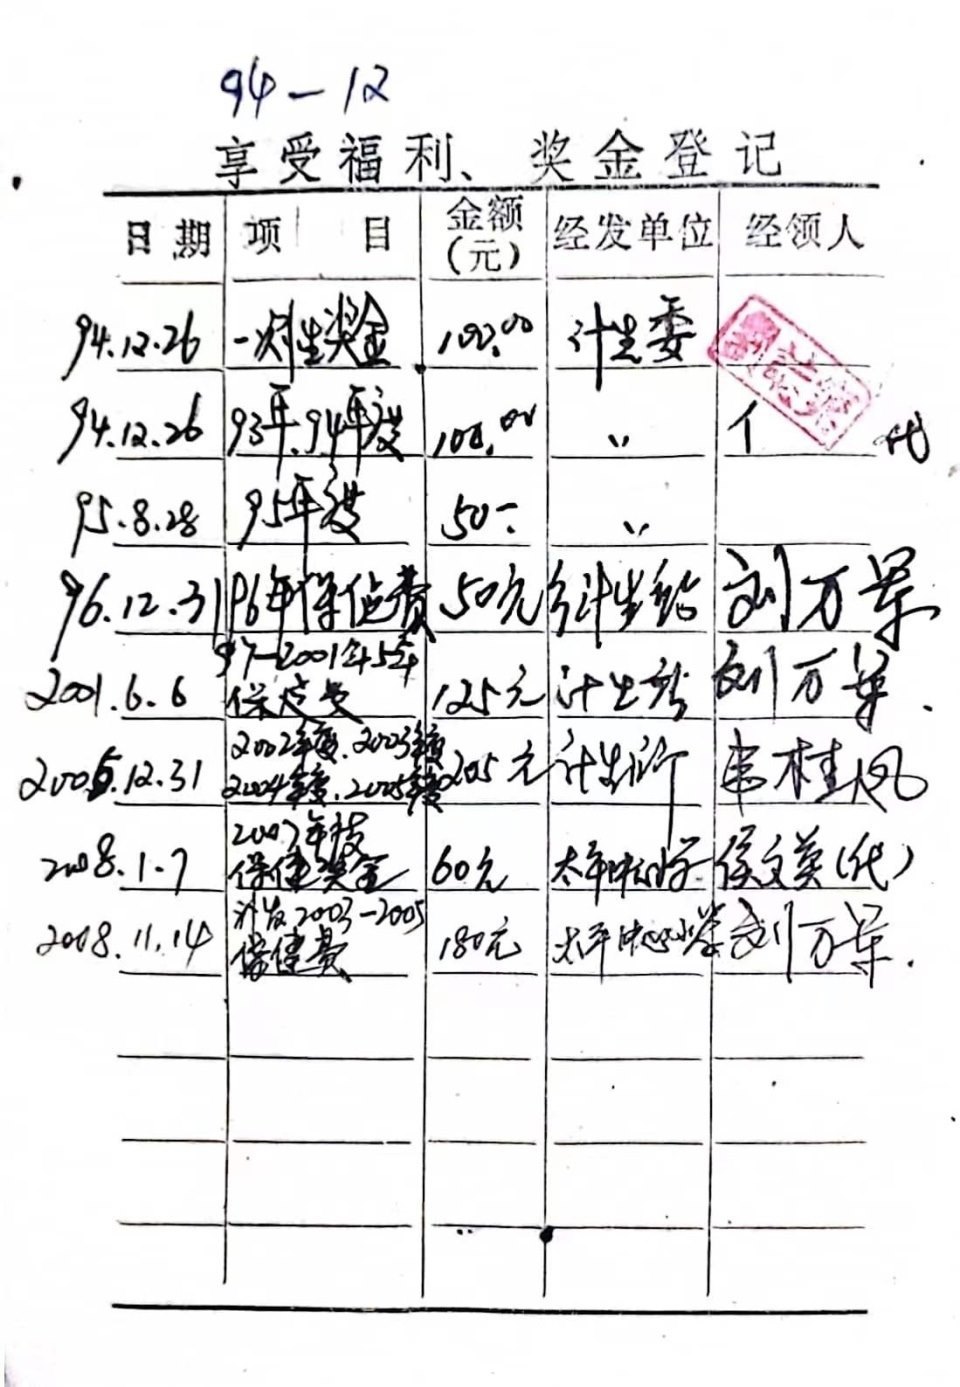 94-12
享受福利、奖金登记
日期 项目 金额(元) 经发单位 经领人
94.12.26 一次性奖金 100.00 计生委
94.12.26 93年、94年度 100.00 〃 代
95.8.28 95年度 50- 〃
96.12.31 96年保健费 50元 计生 刘万军
2001.6.6 97-2001年5年
保健费 125元 计生 刘万军.
2005.12.31 2002年度、2003年度
2004年度、2005年度 205元 计生 韦桂凤
2008.1.7 2007年度
保健奖金 60元 太平中心小学 侯文英(代)
2008.11.14 补发2003-2005
保健费 180元 太平中心小学 刘万军.